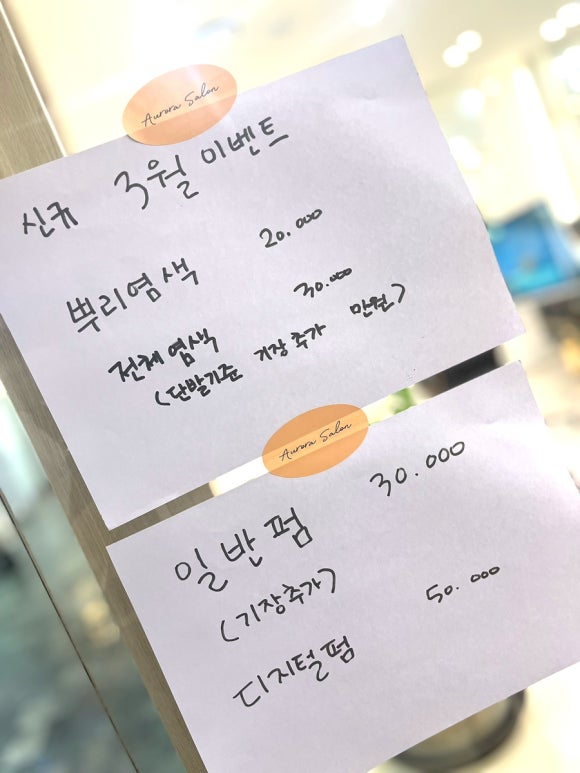 Aurora Salon
신규 3월 이벤트
뿌리염색 20.000
전체염색 30.000
(단발기준 기장추가 만원)
Aurora Salon
일반펌 30.000
(기장추가)
디지털펌 50.000